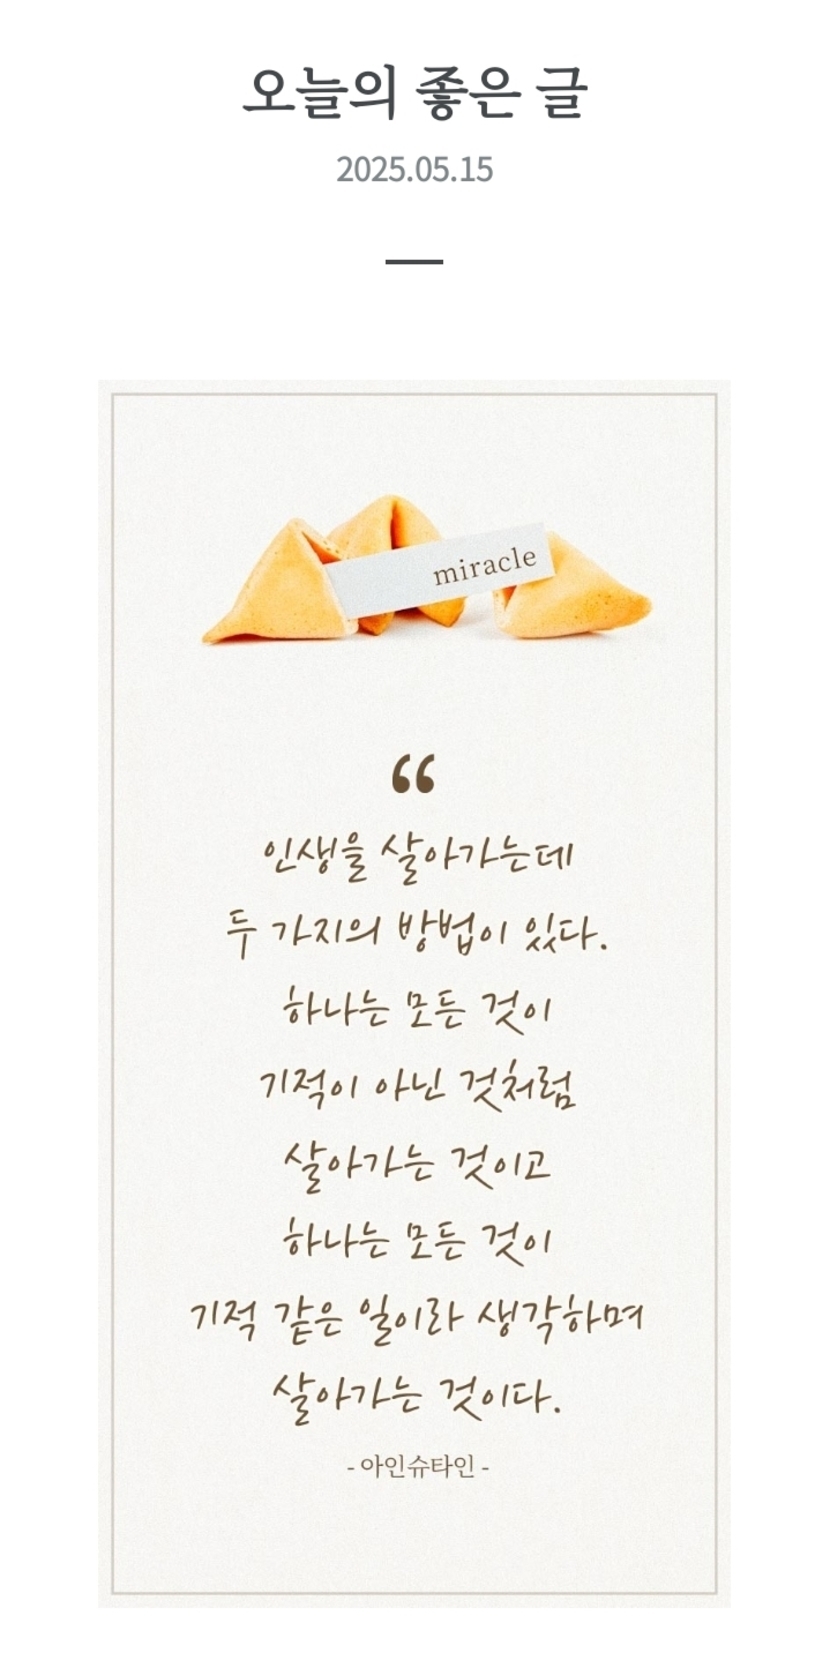 오늘의 좋은 글
2025.05.15
miracle
“
인생을 살아가는데
두 가지의 방법이 있다.
하나는 모든 것이
기적이 아닌 것처럼
살아가는 것이고
하나는 모든 것이
기적 같은 일이라 생각하며
살아가는 것이다.
- 아인슈타인 -